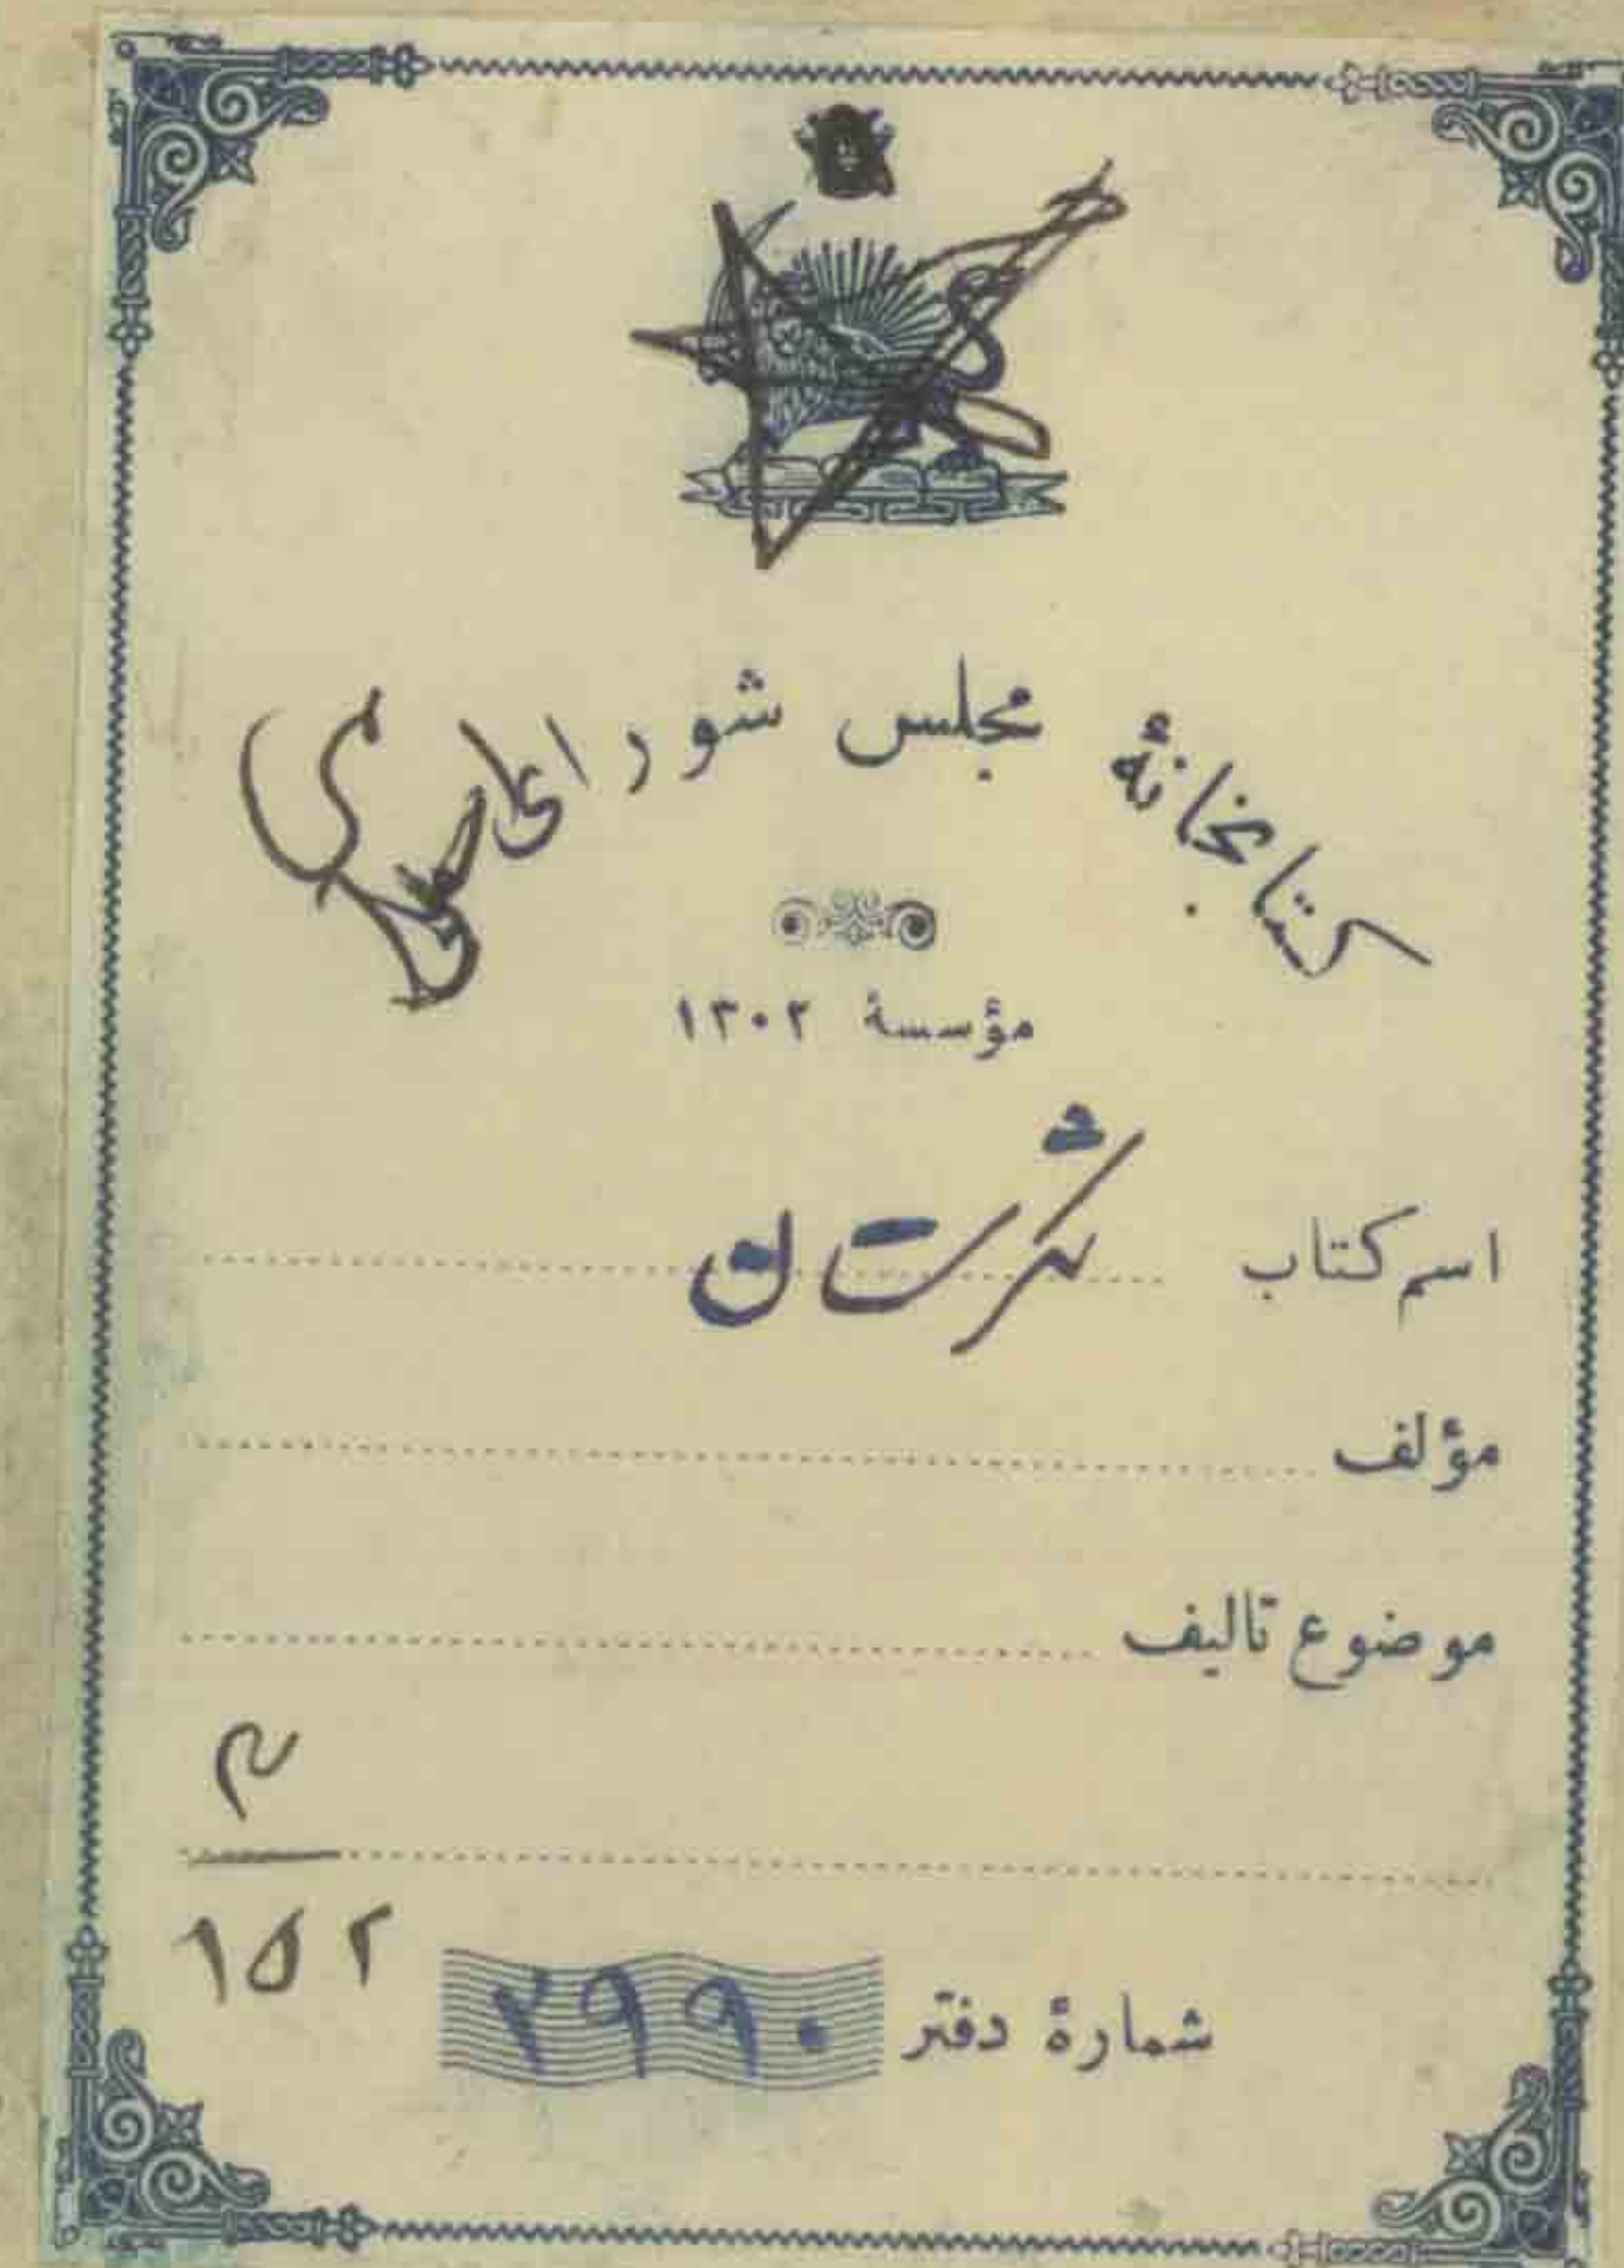 کتابخانهٔ مجلس شورای
مؤسسهٔ ۱۳۰۲
اسم کتاب
مؤلف
موضوع تالیف
۱۵۲
شمارهٔ دفتر ۲۹۹۰